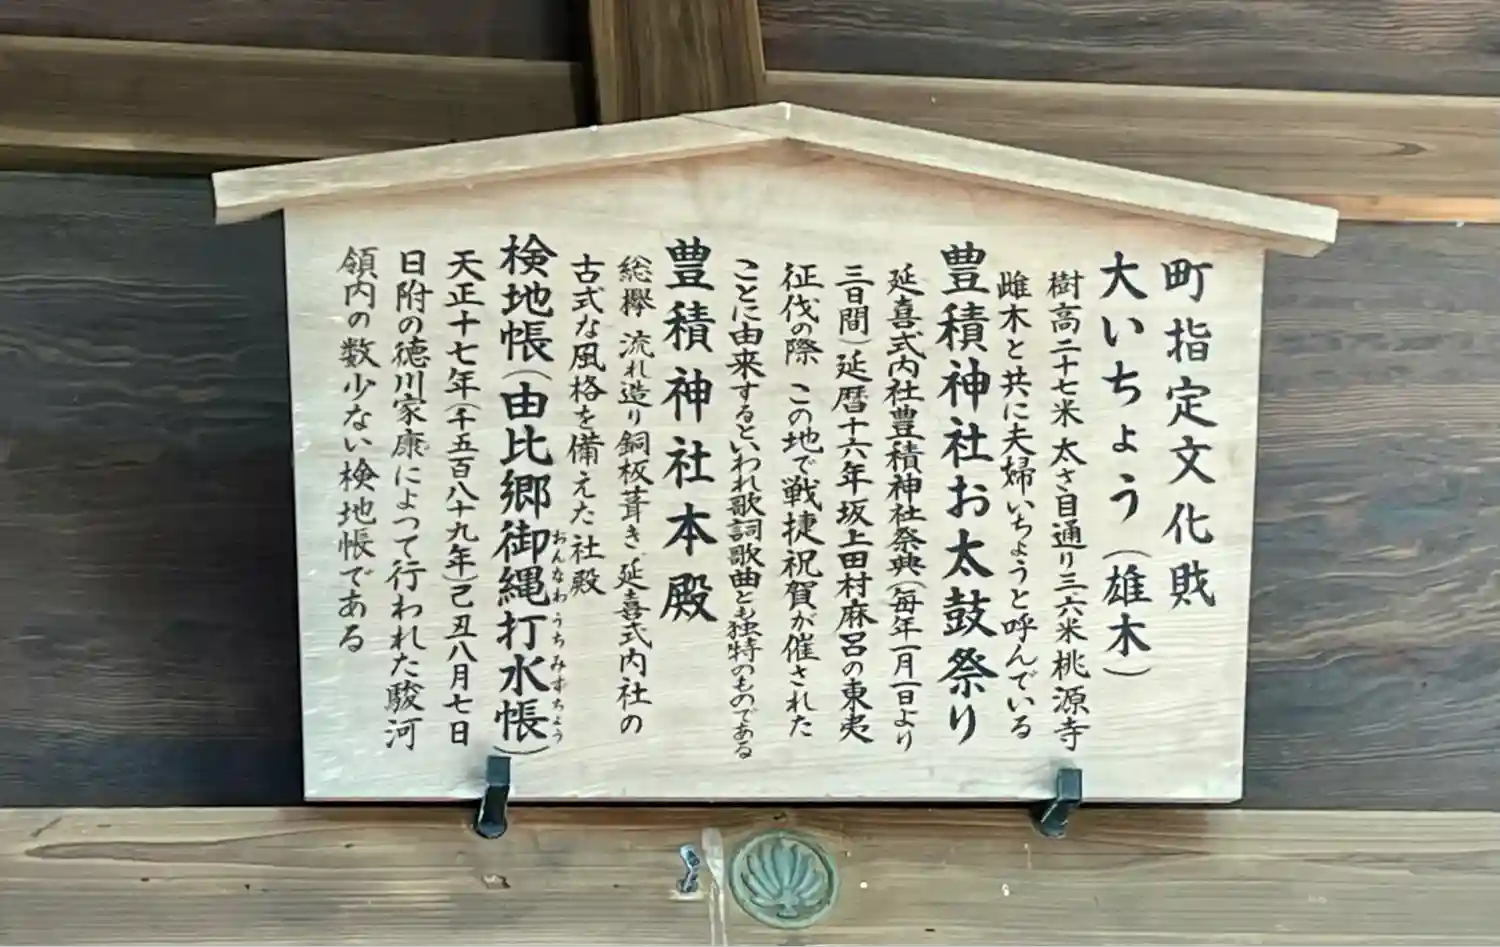 町指定文化財
大いちょう(雄木)
樹高二十七米 太さ目通り三六米桃源寺
雌木と共に夫婦いちょうと呼んでいる
豊積神社お太鼓祭り
延喜式内社豊積神社祭典(毎年一月一日より
三日間)延暦十六年坂上田村麻呂の東夷
征伐の際 この地で戦捷祝賀が催された
ことに由来するといわれ歌詞歌曲とも独特のものである
豊積神社本殿
総欅 流れ造り銅板葺き 延喜式内社の
古式な風格を備えた社殿
検地帳(由比郷御縄打水帳)
おんなわうちみずちょう
天正十七年(千五百八十九年)己丑八月七日
日附の徳川家康によって行われた駿河
領内の数少ない検地帳である